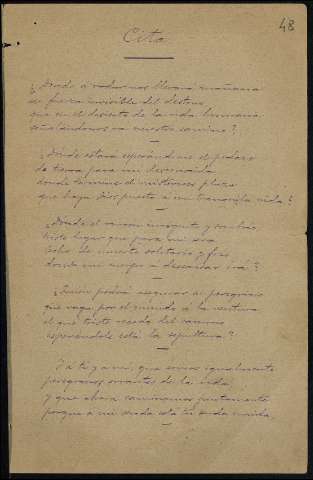 48
Cita
¿Donde a rodarnos llevara mañana
la fuerza invisible del destino
que en el desierto de la vida humana
señalándonos va nuestro camino?
¿Dónde estará esperándome el pedazo
de tierra para mi desconocida
donde termine el misterioso plazo
que haya Dios puesto a mi transitoria vida?
¿Dónde el rincón y sombrío
triste lugar que para mi será
lecho de muerte solitario y frío
donde mi cuerpo a descansar irá?
¿Quién podrá asegurar al peregrino
que vaga por el mundo a la ventura
el que tras recodo del camino
esperándole está la sepultura?
Ya tú y a mi, que somos igualmente
peregrinos errantes de la vida
y que ahora caminamos juntamente
porque a mi senda está tu senda unida,